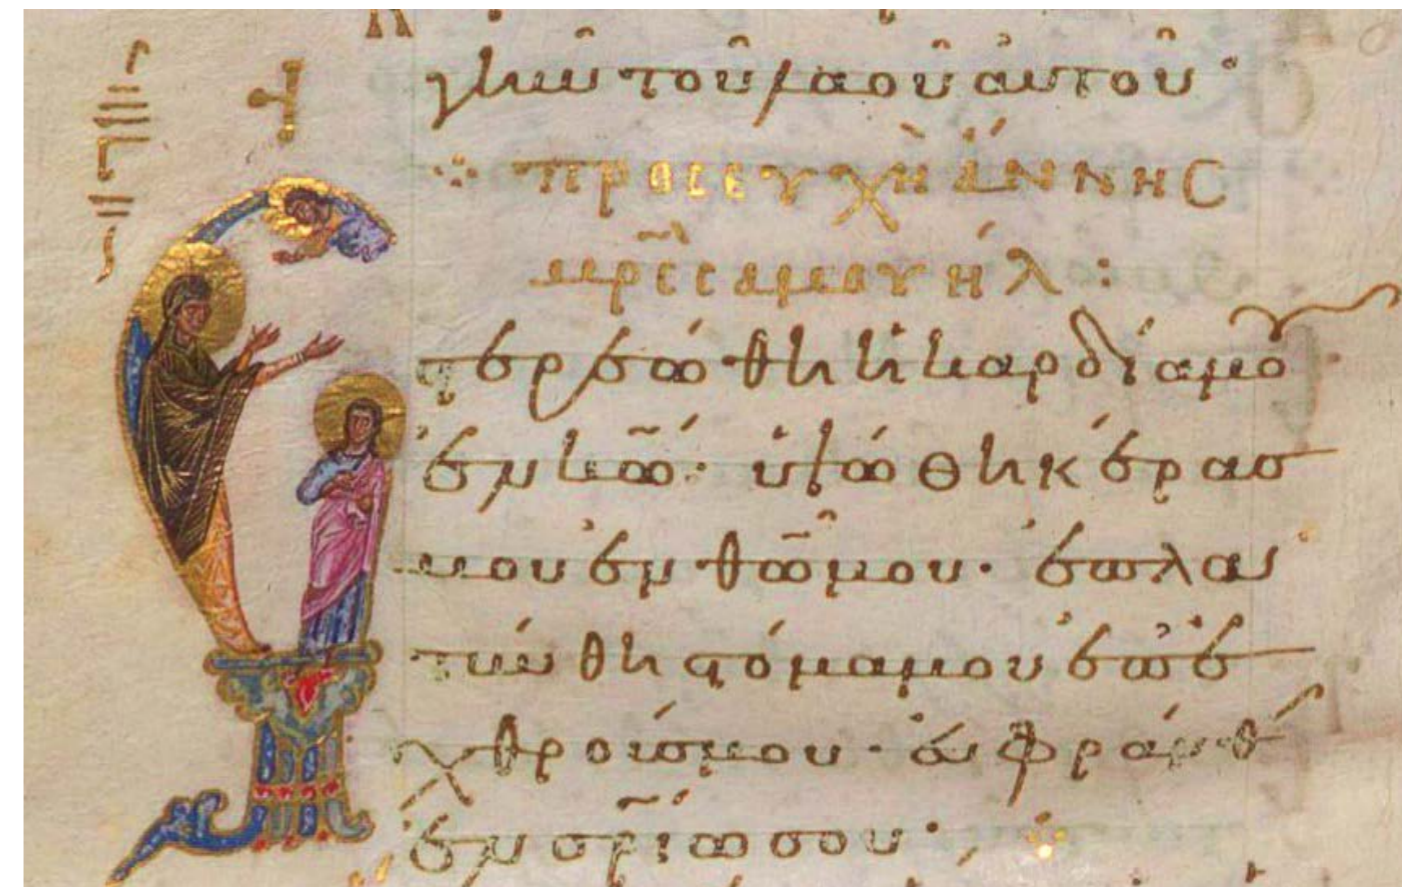 γῆν τοῦ λαοῦ αὐτοῦ·
προσευχὴ ἄννης
μρ̅ς σαμουήλ :
Εστερεώθη ἡ καρδία μου
ἐν κ̅ω̅· ὑψώθη κέρας
μου ἐν θ̅ω̅ μου· ἐπλα
τύνθη στόμα μου ἐπ ἐ
χθρούς μου· εὐφράνθη
ἐν σρ̅ίω σου·